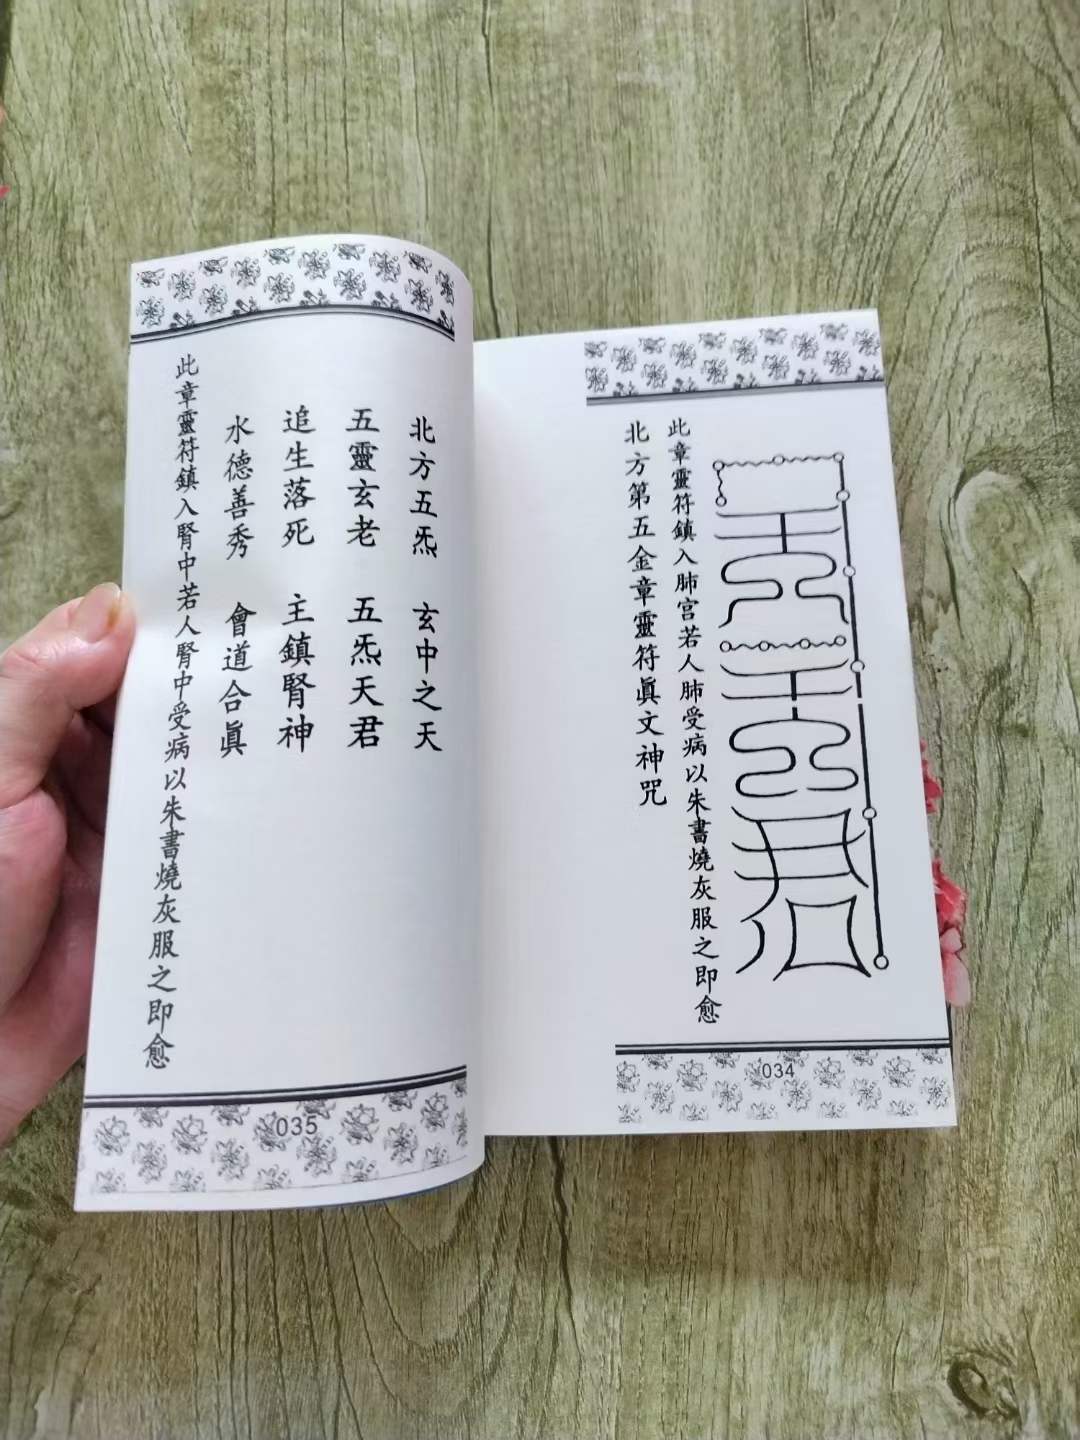 此章靈符鎮入肺宮若人肺受病以朱書燒灰服之即愈
北方第五金章靈符眞文神咒
034
北方五炁 玄中之天
五靈玄老 五炁天君
追生落死 主鎮腎神
水德善秀 會道合眞
此章靈符鎮入腎中若人腎中受病以朱書燒灰服之即愈
035